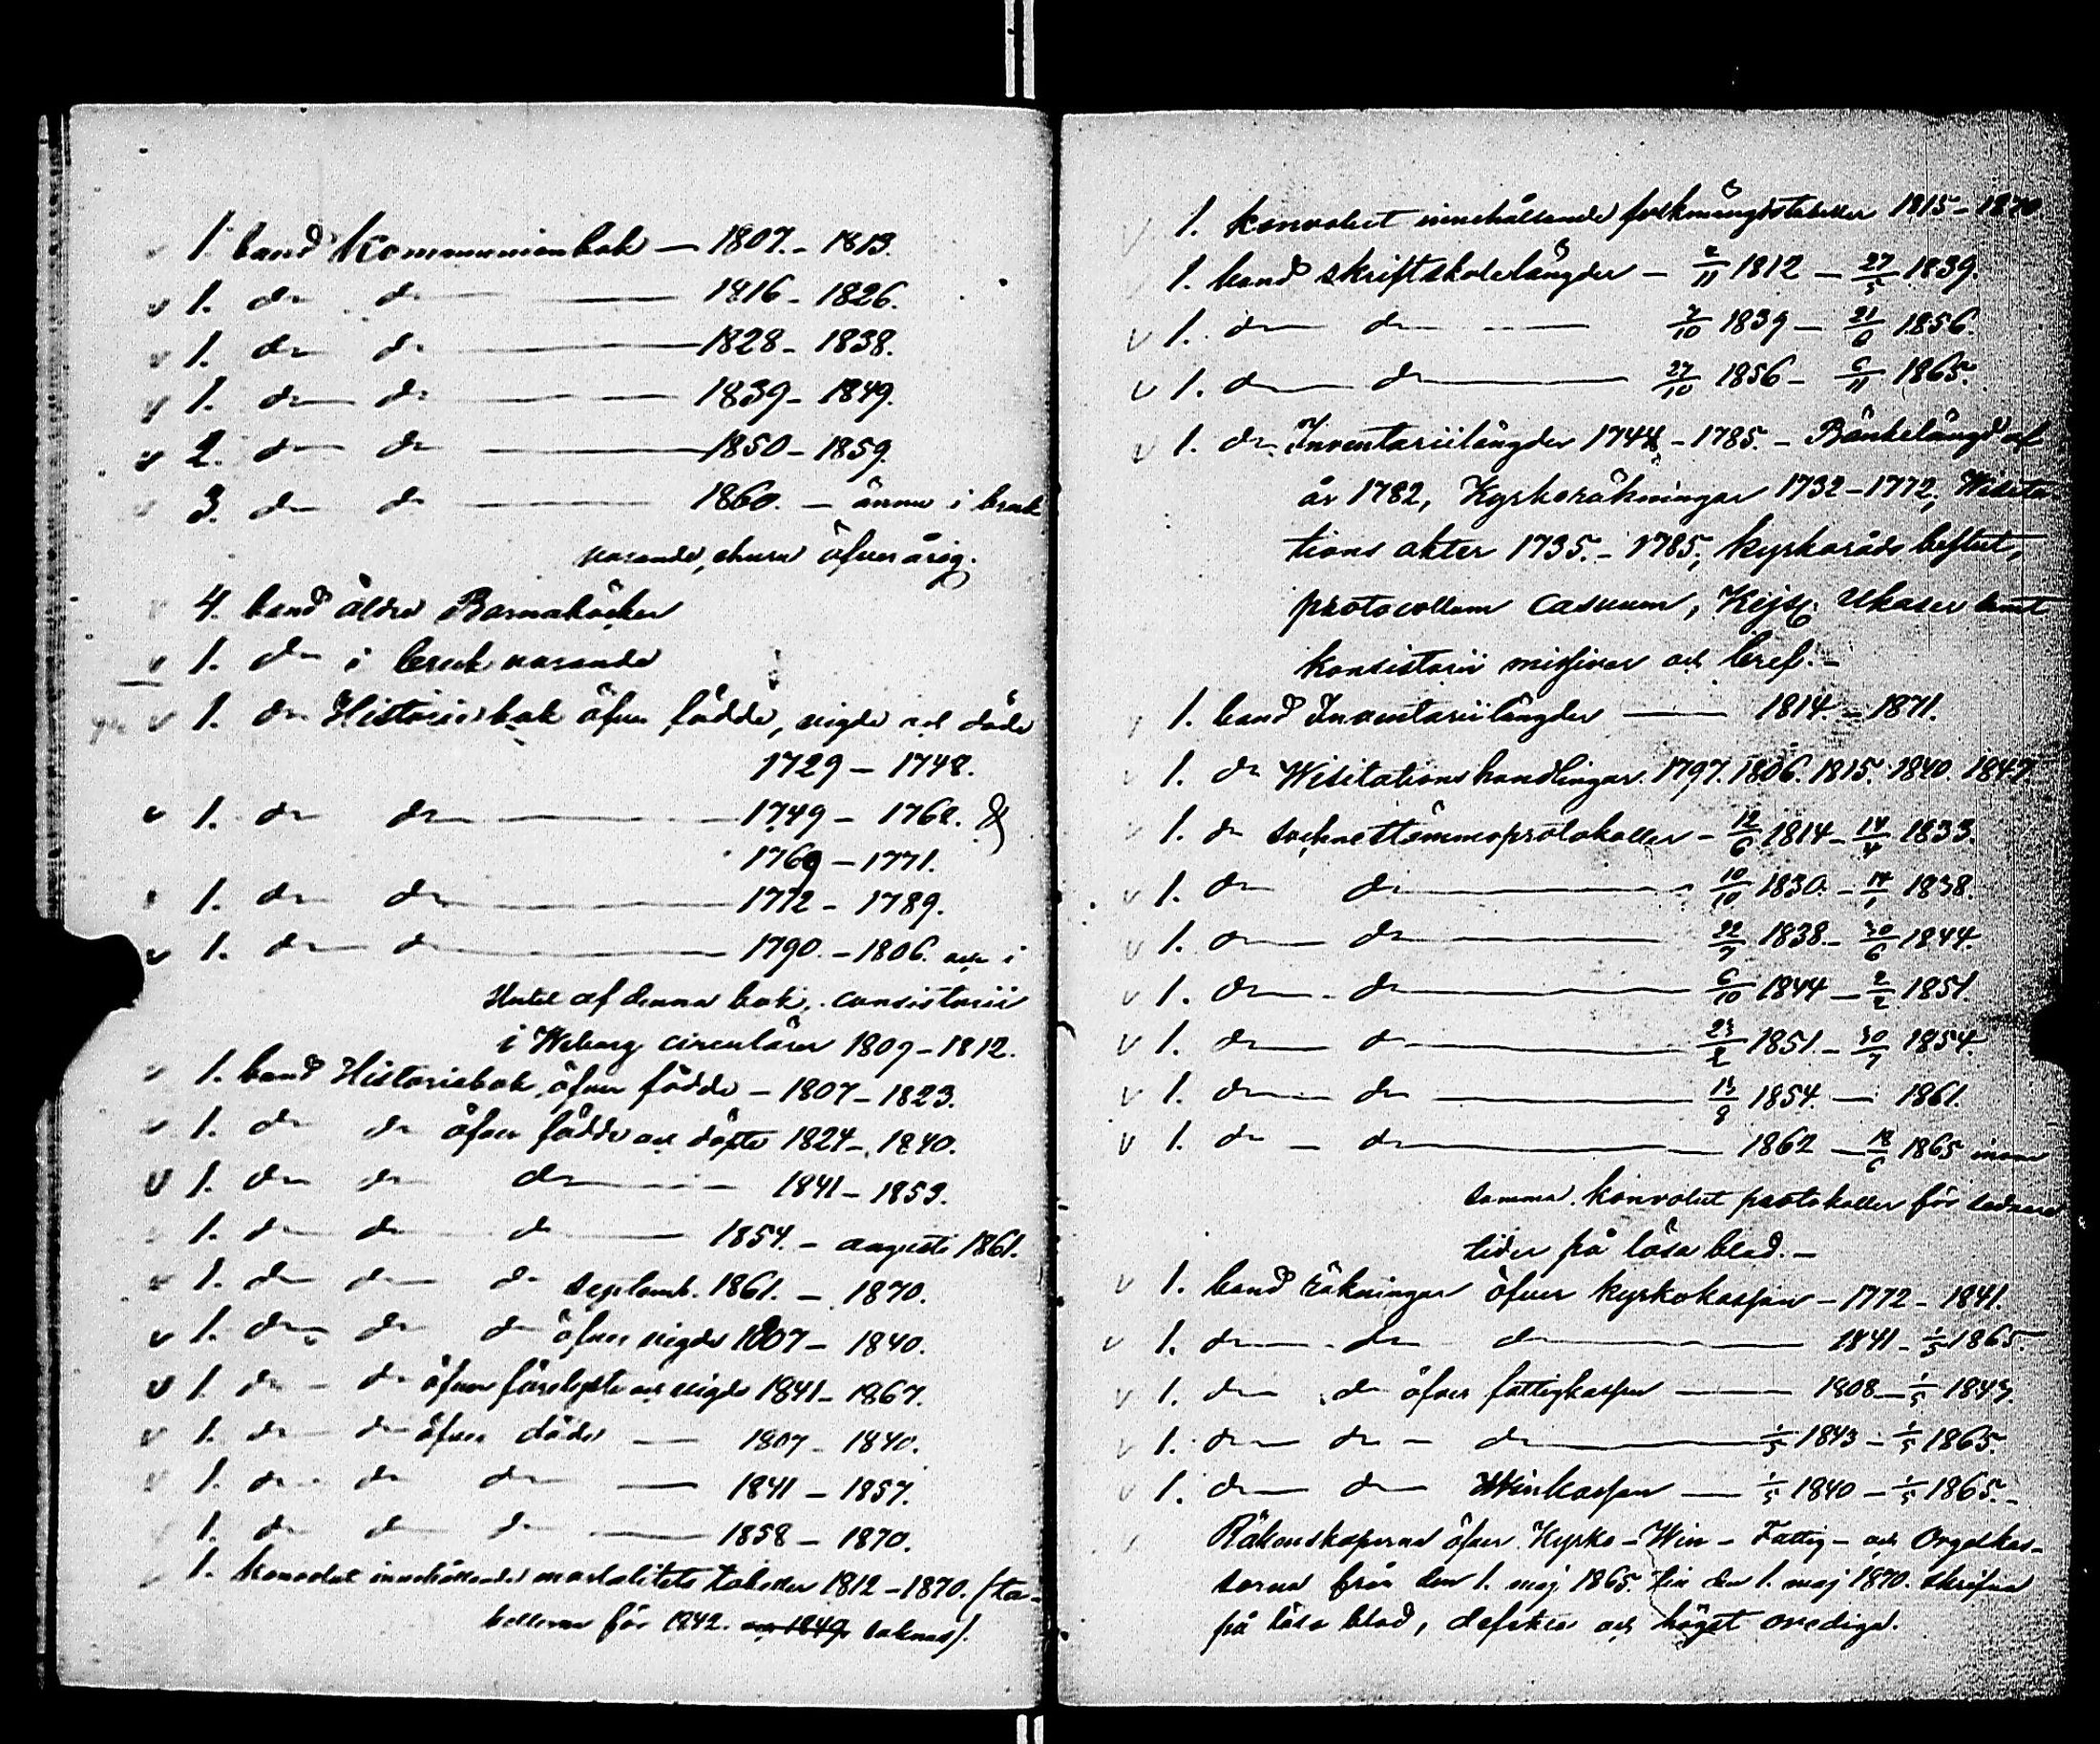 1. band Kommunionbok — 1807. - 1813.
1. do do — 1816 - 1826.
1. do do — 1828 - 1838.
1. do do — 1839 - 1849.
2. do do — 1850 - 1859.
3. do do — 1860. — ännu i bruk
varande, ehuru öfverårig.
4. band äldre Barnaböcker
1. do i bruk varande
1. do Historiebok öfver födde, vigde och döde
1729 — 1748.
1. do do — 1749 — 1762. &
1769 — 1771.
1. do do — 1772 - 1789.
1. do do — 1790. - 1806. och i
slutet af denna bok, consistorii
i Wiborg circulärer 1809 - 1812.
1. band Historiebok öfver födde — 1807 - 1823.
1. do do öfver födde och döpte 1824 - 1840.
1. do do do — 1841 - 1853.
1. do do do — 1854. - augusti 1861.
1. do do do septemb. 1861. — 1870.
1. do do do öfver vigde 1807 — 1840.
1. do - do öfver förelyste och vigde 1841 - 1867.
1. do do öfver döde — 1807 - 1840.
1. do do do — 1841 — 1857.
1. do do do — 1858 — 1870.
1. konvolut innehållande mortalitets tabeller 1812 - 1870. (ta-
bellerna för 1842. och 1849, saknas).
1. konvolut innehållande folkmängdstabeller 1815 - 1870
1. band skriftskolelängder — 2/11 1812 — 27/5 1839.
1. do do — 7/10 1839 — 21/6 1856.
1. do do — 27/10 1856 - 6/11 1865.
1. do Inventariilängder 1744 - 1785. - Bänkelängd af
år 1782, Kyrkoräkningar 1732 - 1772, Wisita-
tions akter 1735. - 1785, kyrkoråds beslut,
protocollum casuum, Kejs. Ukaser samt
konsistorii missiver och bref. -
1. band Inventariilängder — 1814. - 1871.
1. do Wisitationshandlingar. 1797. 1806. 1815. 1840. 1847
1. do socknestämmoprotokoller - 12/6 1814 - 14/4 1833.
1. do do — 10/10 1830. - 14/1 1838.
1. do do — 22/7 1838. - 30/6 1844.
1. do do — 6/10 1844 — 2/2 1851.
1. do do — 23/2 1851. - 30/7 1854.
1. do do — 13/8 1854. — 1861.
1. do - do — 1862 — 18/6 1865 inom
samma konvolut protokoller för sednare
tider på lösa blad. -
1. band räkningar öfver kyrkokassan - 1772 - 1841.
1. do do do — 1841 - 1/5 1865.
1. do do öfver fattigkassan — 1808 - 1/5 1843.
1. do do - do — 1/5 1843 - 1/5 1865.
1. do do Winkassan — 1/5 1840 - 1/5 1865. -
Räkenskaperna öfver Kyrko - Win - Fattig - och Orgelkas-
sorna från den 1. maj 1865. till den 1. maj 1870. skrifna
på lösa blad, defekta och högst orediga.